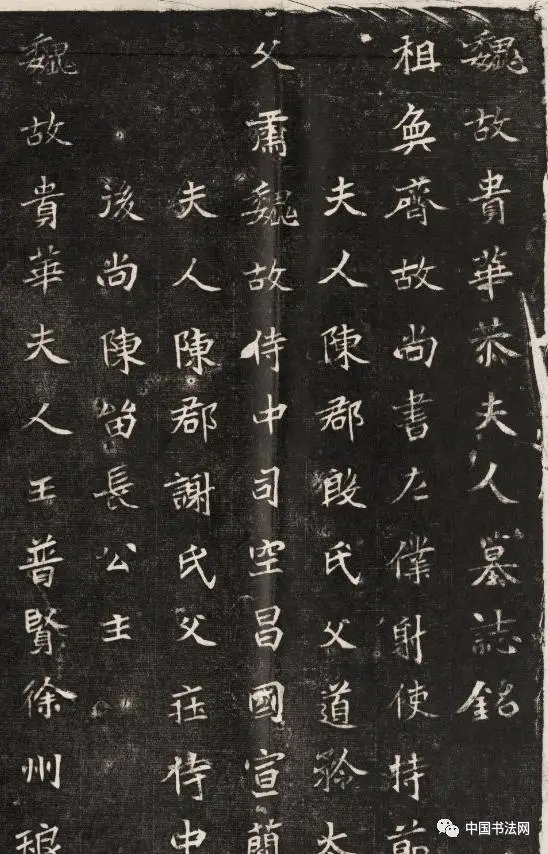 魏故貴華恭夫人墓誌銘
祖奐齊故尚書左僕射使持節
夫人陳郡殷氏父道矜太
父肅魏故侍中司空昌國宣簡
夫人陳郡謝氏父莊侍中
後尚陳留長公主
魏故貴華夫人王普賢徐州琅
中国书法网